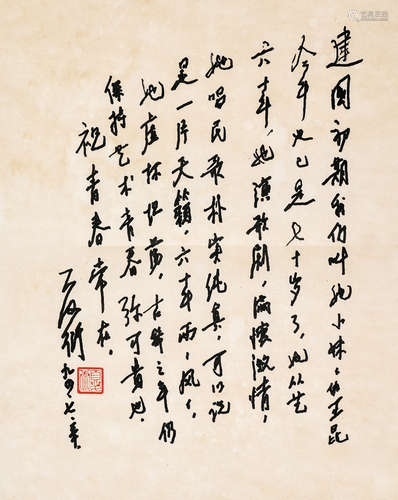 建國初期我们叫她小妹々的王昆
今年也已是七十岁了，她从艺
六十年，她演歌剧，满懷激情，
她唱民歌朴实纯真，可以说
是一片天籁，六十年雨々風々，
她虚怀坦荡，古稀之年仍
保持艺术青春弥可貴也，
祝青春常在。
九四、七、